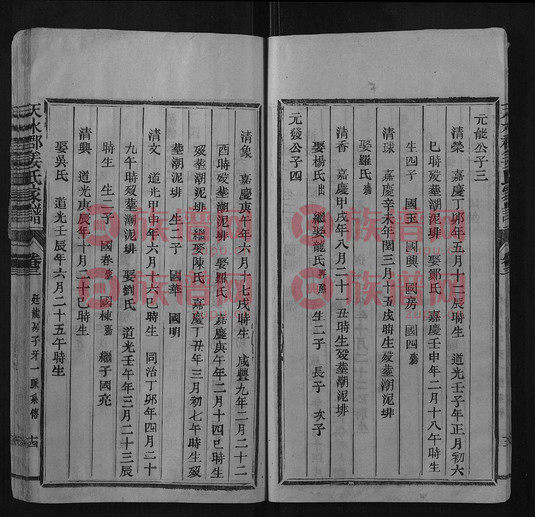 元能公子三
清榮 嘉慶丁卯年五月十一辰時生 道光壬子年正月初六
巳時歿葬潮泥埤 娶鄒氏 嘉慶壬申年二月十八午時生
生四子 國玉 國興 國房 國四
清球 嘉慶辛未年閏三月十五戌時生歿葬潮泥埤
娶羅氏
清香 嘉慶甲戌年八月二十一丑時生歿葬潮泥埤
娶楊氏 繼娶龍氏 生二子 長子 次子
元發公子四
清象 嘉慶庚午年六月十七戌時生 咸豐九年二月二十二
酉時歿葬潮泥埤 娶羅氏 嘉慶庚午年二月十四巳時生
歿葬潮泥埤 繼娶陳氏 嘉慶丁丑年三月初七午時生歿
葬潮泥埤 生二子 國華 國明
清文 道光甲申年六月十六巳時生 同治丁卯年四月二十
九午時歿葬潮泥埤 娶劉氏 道光壬午年三月二十三辰
時生 生二子 國春 國棟 繼子國亮
清興 道光庚辰年十月二十巳時生
娶吳氏 道光壬辰年六月二十五午時生
天水郡姜氏家譜 卷三 廷龍房子牙一脈系傳
族譜网